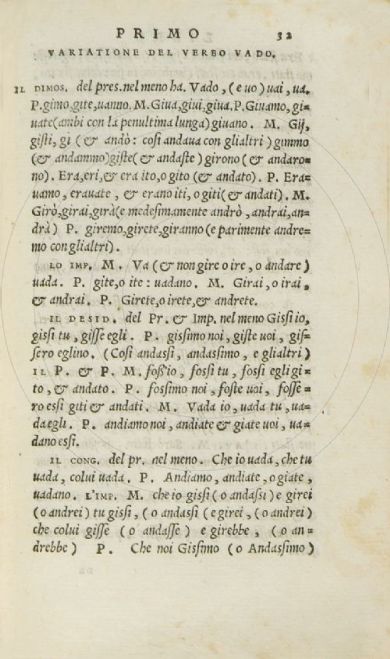 PRIMO 32
VARIATIONE DEL VERBO VADO.
IL DIMOS. del pres. nel meno ha. Vado, (e uo) uai, ua.
P. gimo, gite, uanno. M. Giua, giui, giua. P. Giuamo, gi=
uate (ambi con la penultima lunga) giuano. M. Gij,
gisti, gì (& andò: così andaua con gli altri) gimmo
(& andammo) giste (& andaste) girono (& andaro=
no). Era, eri, & era ito, o gito (& andato). P. Era=
uamo, erauate, & erano iti, o giti (& andati). M.
Girò, girai, girà (e medesimamente andrò, andrai, an=
drà) P. giremo, girete, giranno (e parimente andre=
mo con gli altri).
LO IMP. M. Va (& non gire o ire, o andare)
uada. P. gite, o ite: uadano. M. Girai, o irai,
& andrai. P. Girete, o irete, & andrete.
IL DESID. del Pr. & Imp. nel meno Gissi io,
gissi tu, gisse egli. P. gissimo noi, giste uoi, gis=
sero eglino. (Così andassi, andassimo, e gli altri)
IL P. & P. M. foss'io, fossi tu, fossi egli gi=
to, & andato. P. fossimo noi, foste uoi, fosse=
ro essi giti & andati. M. Vada io, uada tu, ua=
da egli. P. andiamo noi, andiate & giate uoi, ua=
dano essi.
IL CONG. del pr. nel meno. Che io uada, che tu
uada, colui uada. P. Andiamo, andiate, o giate,
uadano. L'IMP. M. che io gissi (o andassi) e girei
(o andrei) tu gissi, (o andassi (e girei, (o andrei)
che colui gisse (o andasse) e girebbe, (o an=
drebbe) P. Che noi Gissimo (o Andassimo)